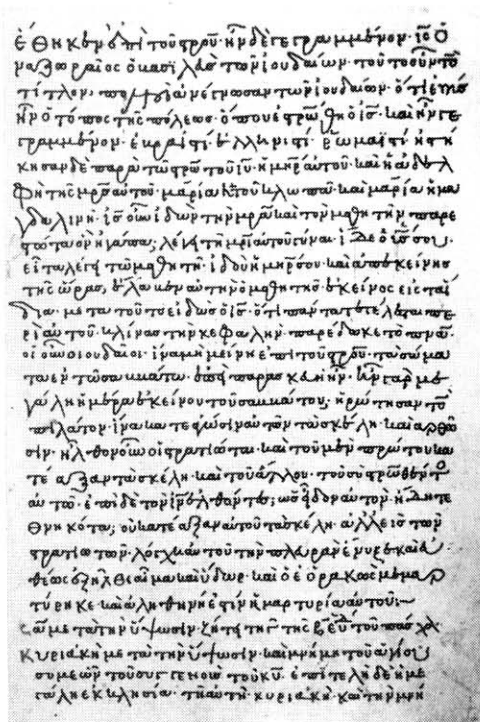 ἔθηκεν ἐπὶ τοῦ στρου· ἦν δὲ γεγραμμένον· ις ὁ
ναζωραῖος ὁ βασιλεὺς τῶν ἰουδαίων· τοῦτον οὖν τὸν
τίτλον, πολλοὶ ἀνέγνωσαν τῶν ἰουδαίων· ὅτι ἐγγὺς
ἦν ὁ τόπος τῆς πόλεως· ὅπου ἐστρώθη ὁ ις· καὶ ἦν γε
γραμμένον· ἑβραϊστὶ· ἑλληνιστὶ· ῥωμαϊστὶ· εἱστή
κησαν δὲ παρὰ τῶ στρω τοῦ ιυ· ἡ μηρ αὐτοῦ· καὶ ἡ ἀδελ
φὴ τῆς μρς αὐτοῦ· μαρία ἡ τοῦ κλωπᾶ· καὶ μαρία ἡ μα
γδαλινή· ις οὖν ἰδὼν τὴν μρα καὶ τὸν μαθητὴν παρε
στῶτα ὃν ἠγάπα, λέγει τῆ μρι αὐτοῦ γύναι· ἴδε ὁ υς σου·
εἶτα λέγει τῶ μαθητῆ· ἰδοὺ ἡ μηρ σου· καὶ ἀπ' ἐκείνης
τῆς ὥρας, ἔλαβεν αὐτὴν ὁ μαθητὴς ἐκεῖνος εἰς τὰ ἴ
δια· μετὰ τοῦτο εἰδὼς ὁ ις· ὅτι πάντα τετέλεσται πε
ρὶ αὐτοῦ· κλίνας τὴν κεφαλὴν· παρέδωκε τὸ πνα·
οἱ οὖν ἰουδαῖοι· ἵνα μὴ μείνη ἐπὶ τοῦ στρου· τὰ σώμα
τα ἐν τῶ σαββάτω· ἐπεὶ παρασκευὴ ἦν· ἦν γὰρ με
γάλη ἡ ἡμέρα ἐκείνου τοῦ σαββάτου, ἠρώτησαν τὸν
πιλάτον· ἵνα κατεαγῶσιν αὐτῶν τὰ σκέλη· καὶ ἀρθῶ
σιν· ἦλθον οὖν οἱ στρατιῶται· καὶ τοῦ μὲν πρώτου κα
τέαξαν τὰ σκέλη· καὶ τοῦ ἄλλου· τοῦ συστρωθέντος
αὐτῶ· ἐπὶ δὲ τὸν ιν ἐλθόντες, ὡς εἶδον αὐτὸν ἤδη τε
θνηκότα, οὐ κατέαξαν αὐτοῦ τὰ σκέλη· ἀλλ' εἷς τῶν
στρατιωτῶν· λόγχη αὐτοῦ τὴν πλευρὰν ἔνυξε· καὶ εὐ
θέως ἐξῆλθεν αἷμα καὶ ὕδωρ· καὶ ὁ ἑορακὼς μεμαρ
τύρηκε· καὶ ἀληθινή ἐστιν ἡ μαρτυρία αὐτοῦ:~
μετὰ τὴν ὕψωσιν· ζήτει
Κυριακὴ μετὰ τὴν ὕψωσιν· καὶ μνήμη τοῦ ἁγίου
συμεὼν τοῦ συγγενοῦς τοῦ κυ· ἐπιτελῆ δὲ ἡ με
γάλη ἐκκλησία· τῆ αὐτῆ κυριακῆ· καὶ τὴν μνή